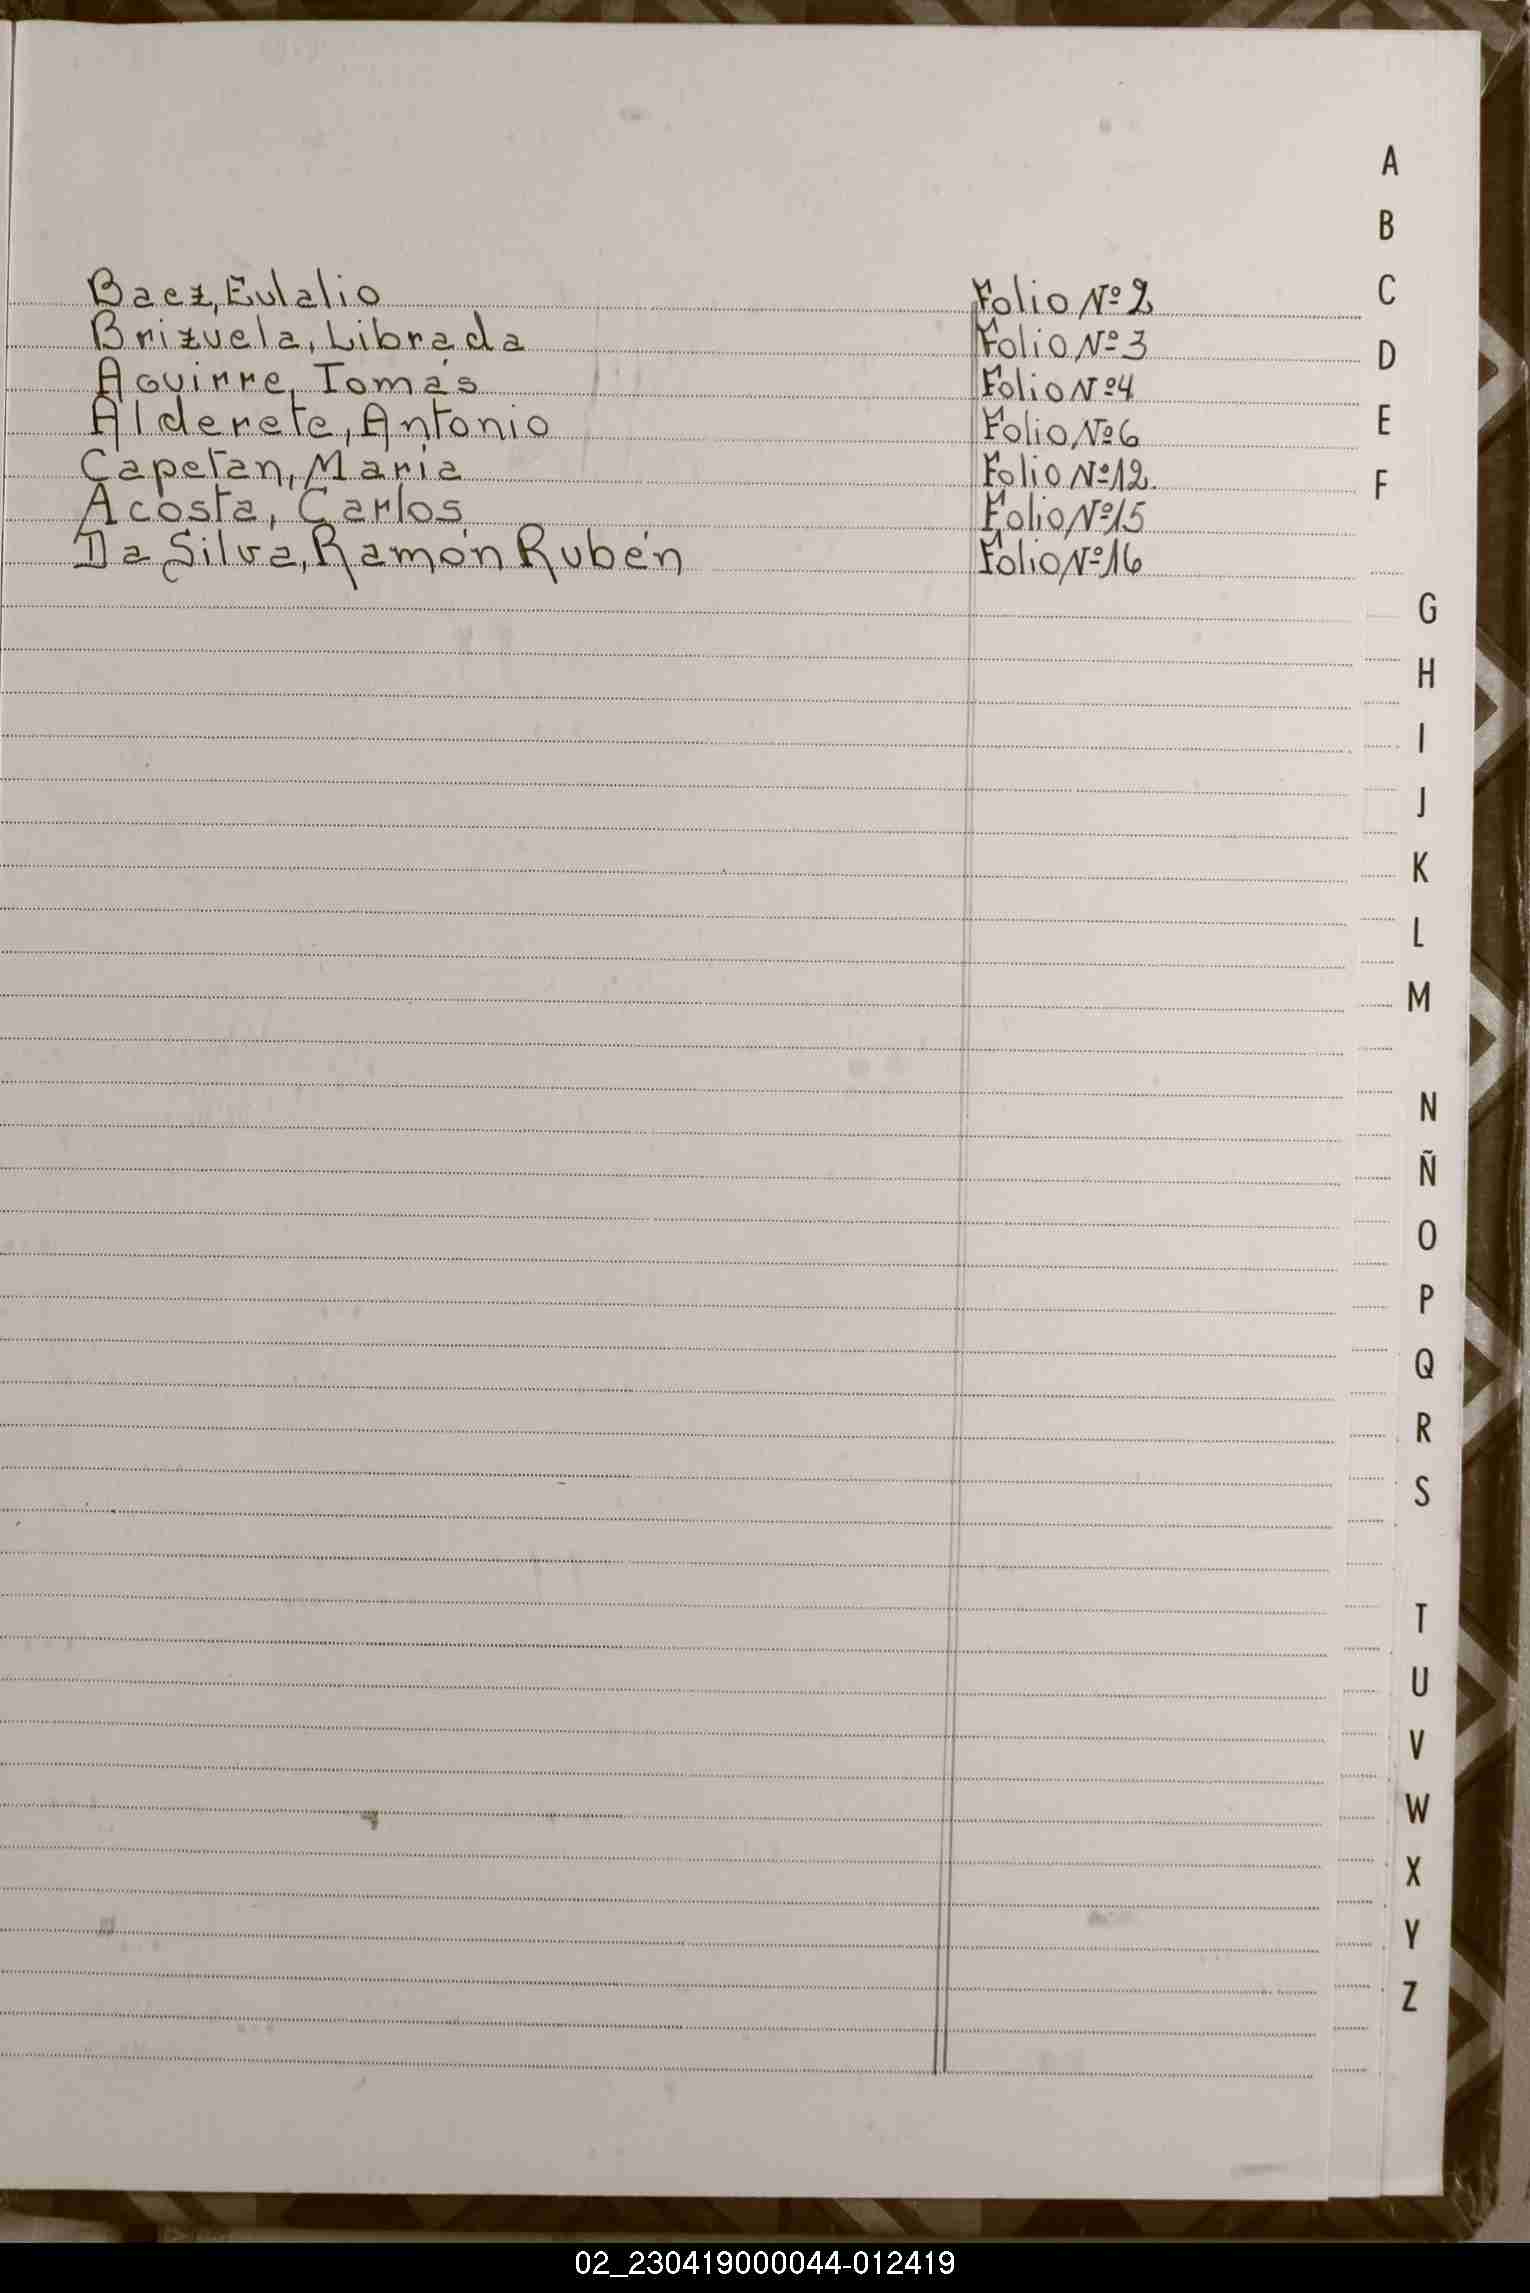 A
B
C
D
E
F
Baez, Eulalio Folio Nº 2
Brizuela, Librada Folio Nº 3
Aguirre, Tomás Folio Nº 4
Alderete, Antonio Folio Nº 6
Capetan, Maria Folio Nº 12.
Acosta, Carlos Folio Nº 15
Da Silva, Ramón Rubén Folio Nº 16
G
H
I
J
K
L
M
N
Ñ
O
P
Q
R
S
T
U
V
W
X
Y
Z
02_230419000044-012419